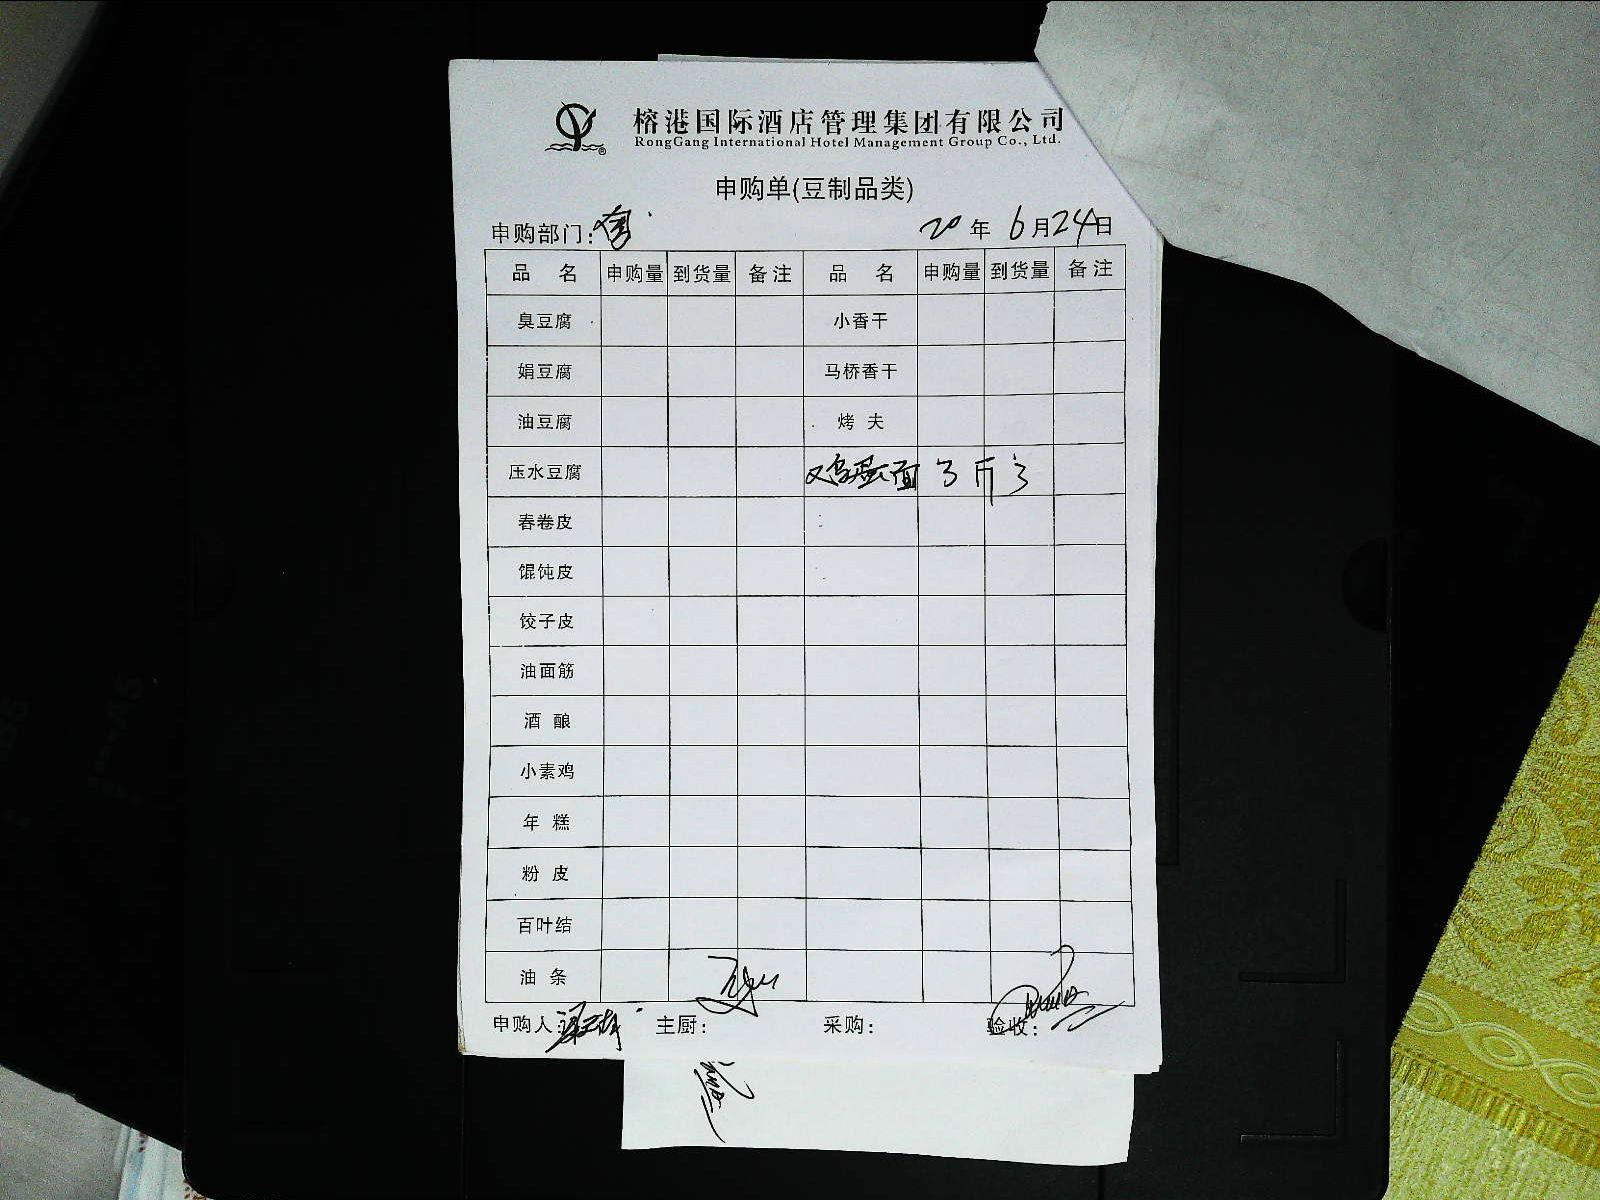 榕港国际酒店管理集团有限公司
RongGang International Hotel Management Group Co., Ltd.
申购单(豆制品类)
申购部门: 20年6月24日
品名 申购量 到货量 备注 品名 申购量 到货量 备注
臭豆腐 小香干
娟豆腐 马桥香干
油豆腐 烤夫
压水豆腐 鸡蛋面 3斤 3
春卷皮
馄饨皮
饺子皮
油面筋
酒酿
小素鸡
年糕
粉皮
百叶结
油条
申购人: 主厨: 采购: 验收: